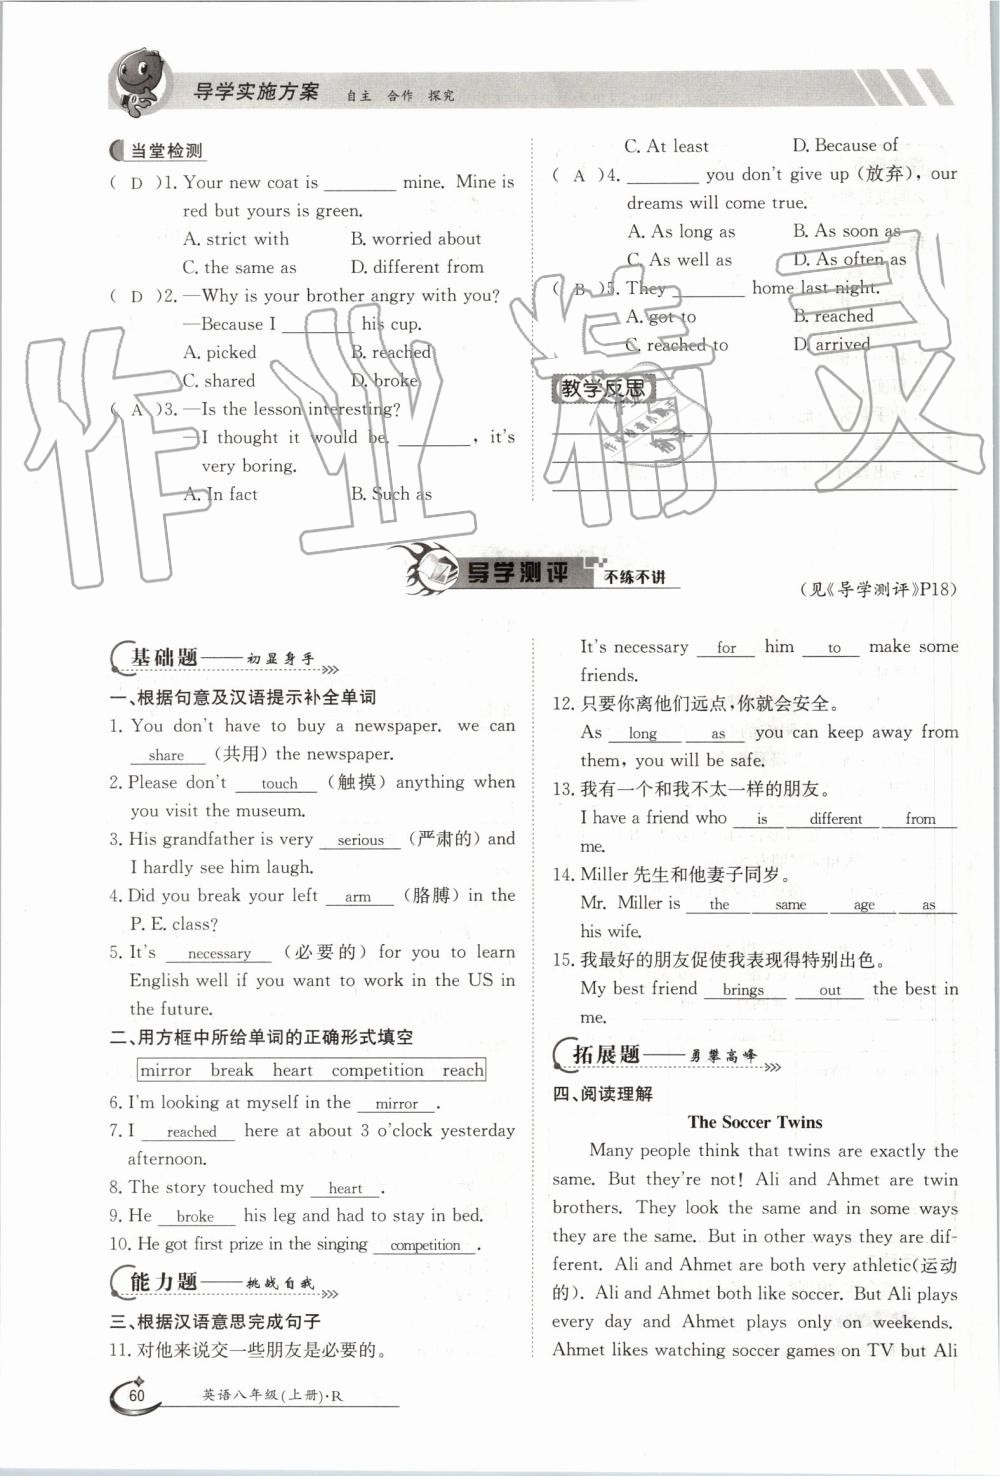 导学实施方案 自主 合作 探究
当堂检测
( D )1. Your new coat is ________ mine. Mine is
red but yours is green.
A. strict with B. worried about
C. the same as D. different from
( D )2. —Why is your brother angry with you?
—Because I ________ his cup.
A. picked B. reached
C. shared D. broke
( A )3. —Is the lesson interesting?
—I thought it would be. ________, it's
very boring.
A. In fact B. Such as
C. At least D. Because of
( A )4. ________ you don't give up (放弃), our
dreams will come true.
A. As long as B. As soon as
C. As well as D. As often as
( B )5. They ________ home last night.
A. got to B. reached
C. reached to D. arrived
教学反思
导学测评 不练不讲
(见《导学测评》P18)
基础题——初显身手
一、根据句意及汉语提示补全单词
1. You don't have to buy a newspaper. we can
share (共用) the newspaper.
2. Please don't touch (触摸) anything when
you visit the museum.
3. His grandfather is very serious (严肃的) and
I hardly see him laugh.
4. Did you break your left arm (胳膊) in the
P. E. class?
5. It's necessary (必要的) for you to learn
English well if you want to work in the US in
the future.
二、用方框中所给单词的正确形式填空
mirror break heart competition reach
6. I'm looking at myself in the mirror.
7. I reached here at about 3 o'clock yesterday
afternoon.
8. The story touched my heart.
9. He broke his leg and had to stay in bed.
10. He got first prize in the singing competition.
能力题——挑战自我
三、根据汉语意思完成句子
11. 对他来说交一些朋友是必要的。
It's necessary for him to make some
friends.
12. 只要你离他们远点,你就会安全。
As long as you can keep away from
them, you will be safe.
13. 我有一个和我不太一样的朋友。
I have a friend who is different from
me.
14. Miller 先生和他妻子同岁。
Mr. Miller is the same age as
his wife.
15. 我最好的朋友促使我表现得特别出色。
My best friend brings out the best in
me.
拓展题——勇攀高峰
四、阅读理解
The Soccer Twins
Many people think that twins are exactly the
same. But they're not! Ali and Ahmet are twin
brothers. They look the same and in some ways
they are the same. But in other ways they are dif-
ferent. Ali and Ahmet are both very athletic(运动
的). Ali and Ahmet both like soccer. But Ali plays
every day and Ahmet plays only on weekends.
Ahmet likes watching soccer games on TV but Ali
60 英语八年级(上册)·R
作业精灵